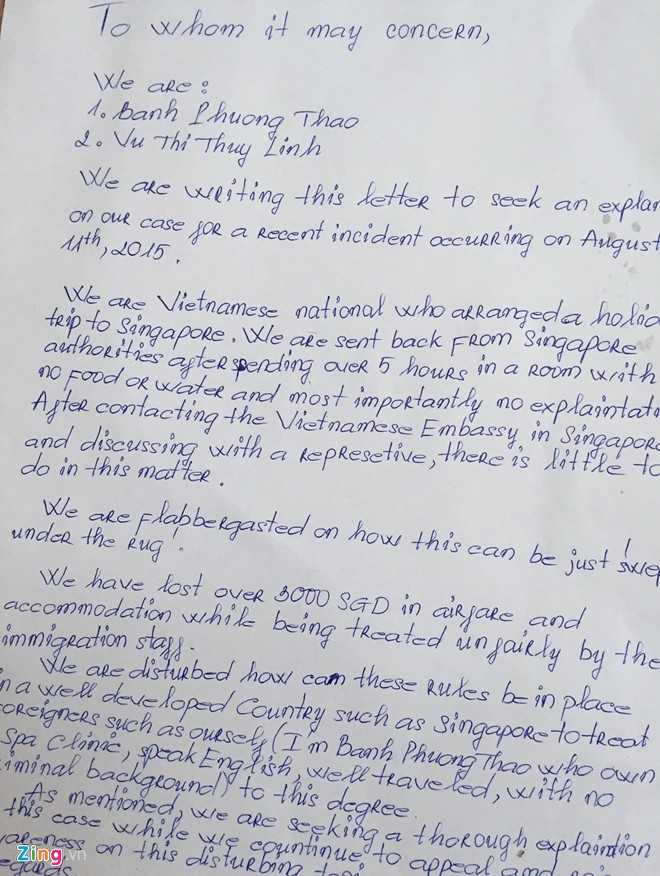 To whom it may concern,
We are :
1. Banh Phuong Thao
2. Vu Thi Thuy Linh
We are writing this letter to seek an explan
on our case for a recent incident occurring on August
11th, 2015.
We are Vietnamese national who arranged a holid
trip to Singapore. We are sent back from Singapore
authorities after spending over 5 hours in a room with
no food or water and most importantly no explaintati
After contacting the Vietnamese Embassy in Singapore
and discussing with a represetive, there is little to
do in this matter.
We are flabbergasted on how this can be just 'swep
under the rug'!
We have lost over 3000 SGD in airfare and
accommodation while being treated unfairly by the
immigration staff.
We are disturbed how can these rules be in place
in a well developed Country such as Singapore to treat
foreigners such as ourself (I'm Banh Phuong Thao who own
spa Clinic, speak English, well traveled, with no
iminal background) to this degree.
As mentioned, we are seeking a thorough explaintion
this case while we countinue to appeal and
wareness on this disturbing
egards
Zing.vn